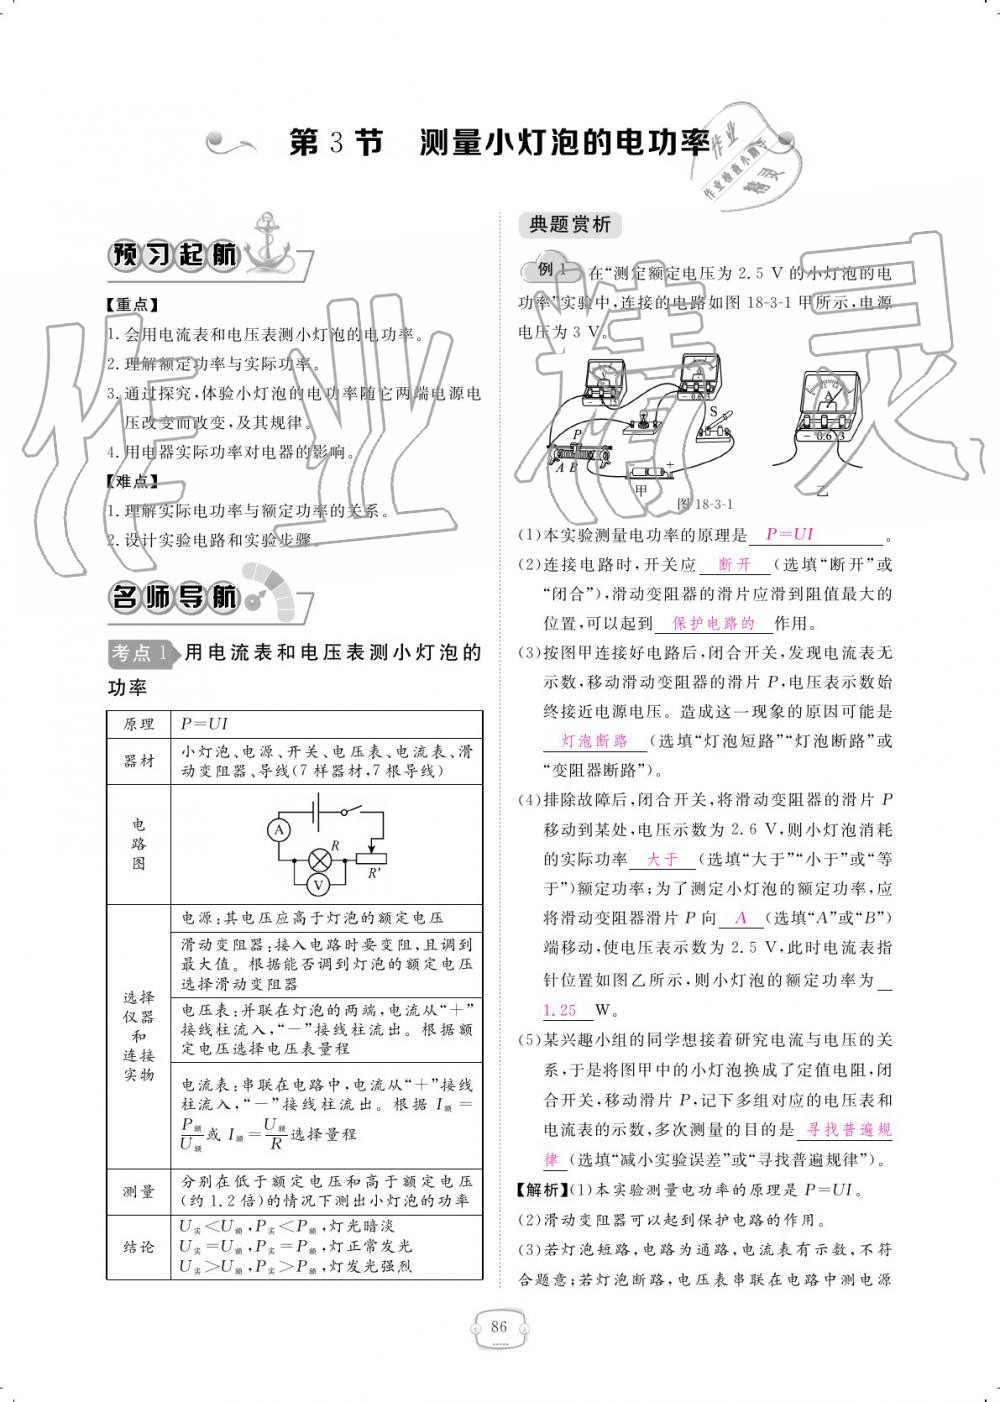 第3节 测量小灯泡的电功率
预习起航
【重点】
1.会用电流表和电压表测小灯泡的电功率。
2.理解额定功率与实际功率。
3.通过探究,体验小灯泡的电功率随它两端电源电
压改变而改变,及其规律。
4.用电器实际功率对电器的影响。
【难点】
1.理解实际电功率与额定功率的关系。
2.设计实验电路和实验步骤。
名师导航
考点1 用电流表和电压表测小灯泡的
功率
原理 P=UI
器材 小灯泡、电源、开关、电压表、电流表、滑
动变阻器、导线(7样器材,7根导线)
电路图
A
R
V
R'
选择仪器和连接实物
电源:其电压应高于灯泡的额定电压
滑动变阻器:接入电路时要变阻,且调到
最大值。根据能否调到灯泡的额定电压
选择滑动变阻器
电压表:并联在灯泡的两端,电流从“+”
接线柱流入,“-”接线柱流出。根据额
定电压选择电压表量程
电流表:串联在电路中,电流从“+”接线
柱流入,“-”接线柱流出。根据 I额=
P额/U额 或 I额=U额/R 选择量程
测量 分别在低于额定电压和高于额定电压
(约1.2倍)的情况下测出小灯泡的功率
结论 U实<U额,P实<P额,灯光暗淡
U实=U额,P实=P额,灯正常发光
U实>U额,P实>P额,灯发光强烈
典题赏析
例1 在“测定额定电压为2.5 V的小灯泡的电
功率”实验中,连接的电路如图18-3-1甲所示,电源
电压为3 V。
P
A B
S
甲
A
- 0.6 3
乙
图18-3-1
(1)本实验测量电功率的原理是 P=UI 。
(2)连接电路时,开关应 断开 (选填“断开”或
“闭合”),滑动变阻器的滑片应滑到阻值最大的
位置,可以起到 保护电路的 作用。
(3)按图甲连接好电路后,闭合开关,发现电流表无
示数,移动滑动变阻器的滑片P,电压表示数始
终接近电源电压。造成这一现象的原因可能是
灯泡断路 (选填“灯泡短路”“灯泡断路”或
“变阻器断路”)。
(4)排除故障后,闭合开关,将滑动变阻器的滑片P
移动到某处,电压示数为2.6 V,则小灯泡消耗
的实际功率 大于 (选填“大于”“小于”或“等
于”)额定功率;为了测定小灯泡的额定功率,应
将滑动变阻器滑片P向 A (选填“A”或“B”)
端移动,使电压表示数为2.5 V,此时电流表指
针位置如图乙所示,则小灯泡的额定功率为
1.25 W。
(5)某兴趣小组的同学想接着研究电流与电压的关
系,于是将图甲中的小灯泡换成了定值电阻,闭
合开关,移动滑片P,记下多组对应的电压表和
电流表的示数,多次测量的目的是 寻找普遍规
律 (选填“减小实验误差”或“寻找普遍规律”)。
【解析】(1)本实验测量电功率的原理是P=UI。
(2)滑动变阻器可以起到保护电路的作用。
(3)若灯泡短路,电路为通路,电流表有示数,不符
合题意;若灯泡断路,电压表串联在电路中测电源
86
作业精灵
作业
作业检查小助手
精灵